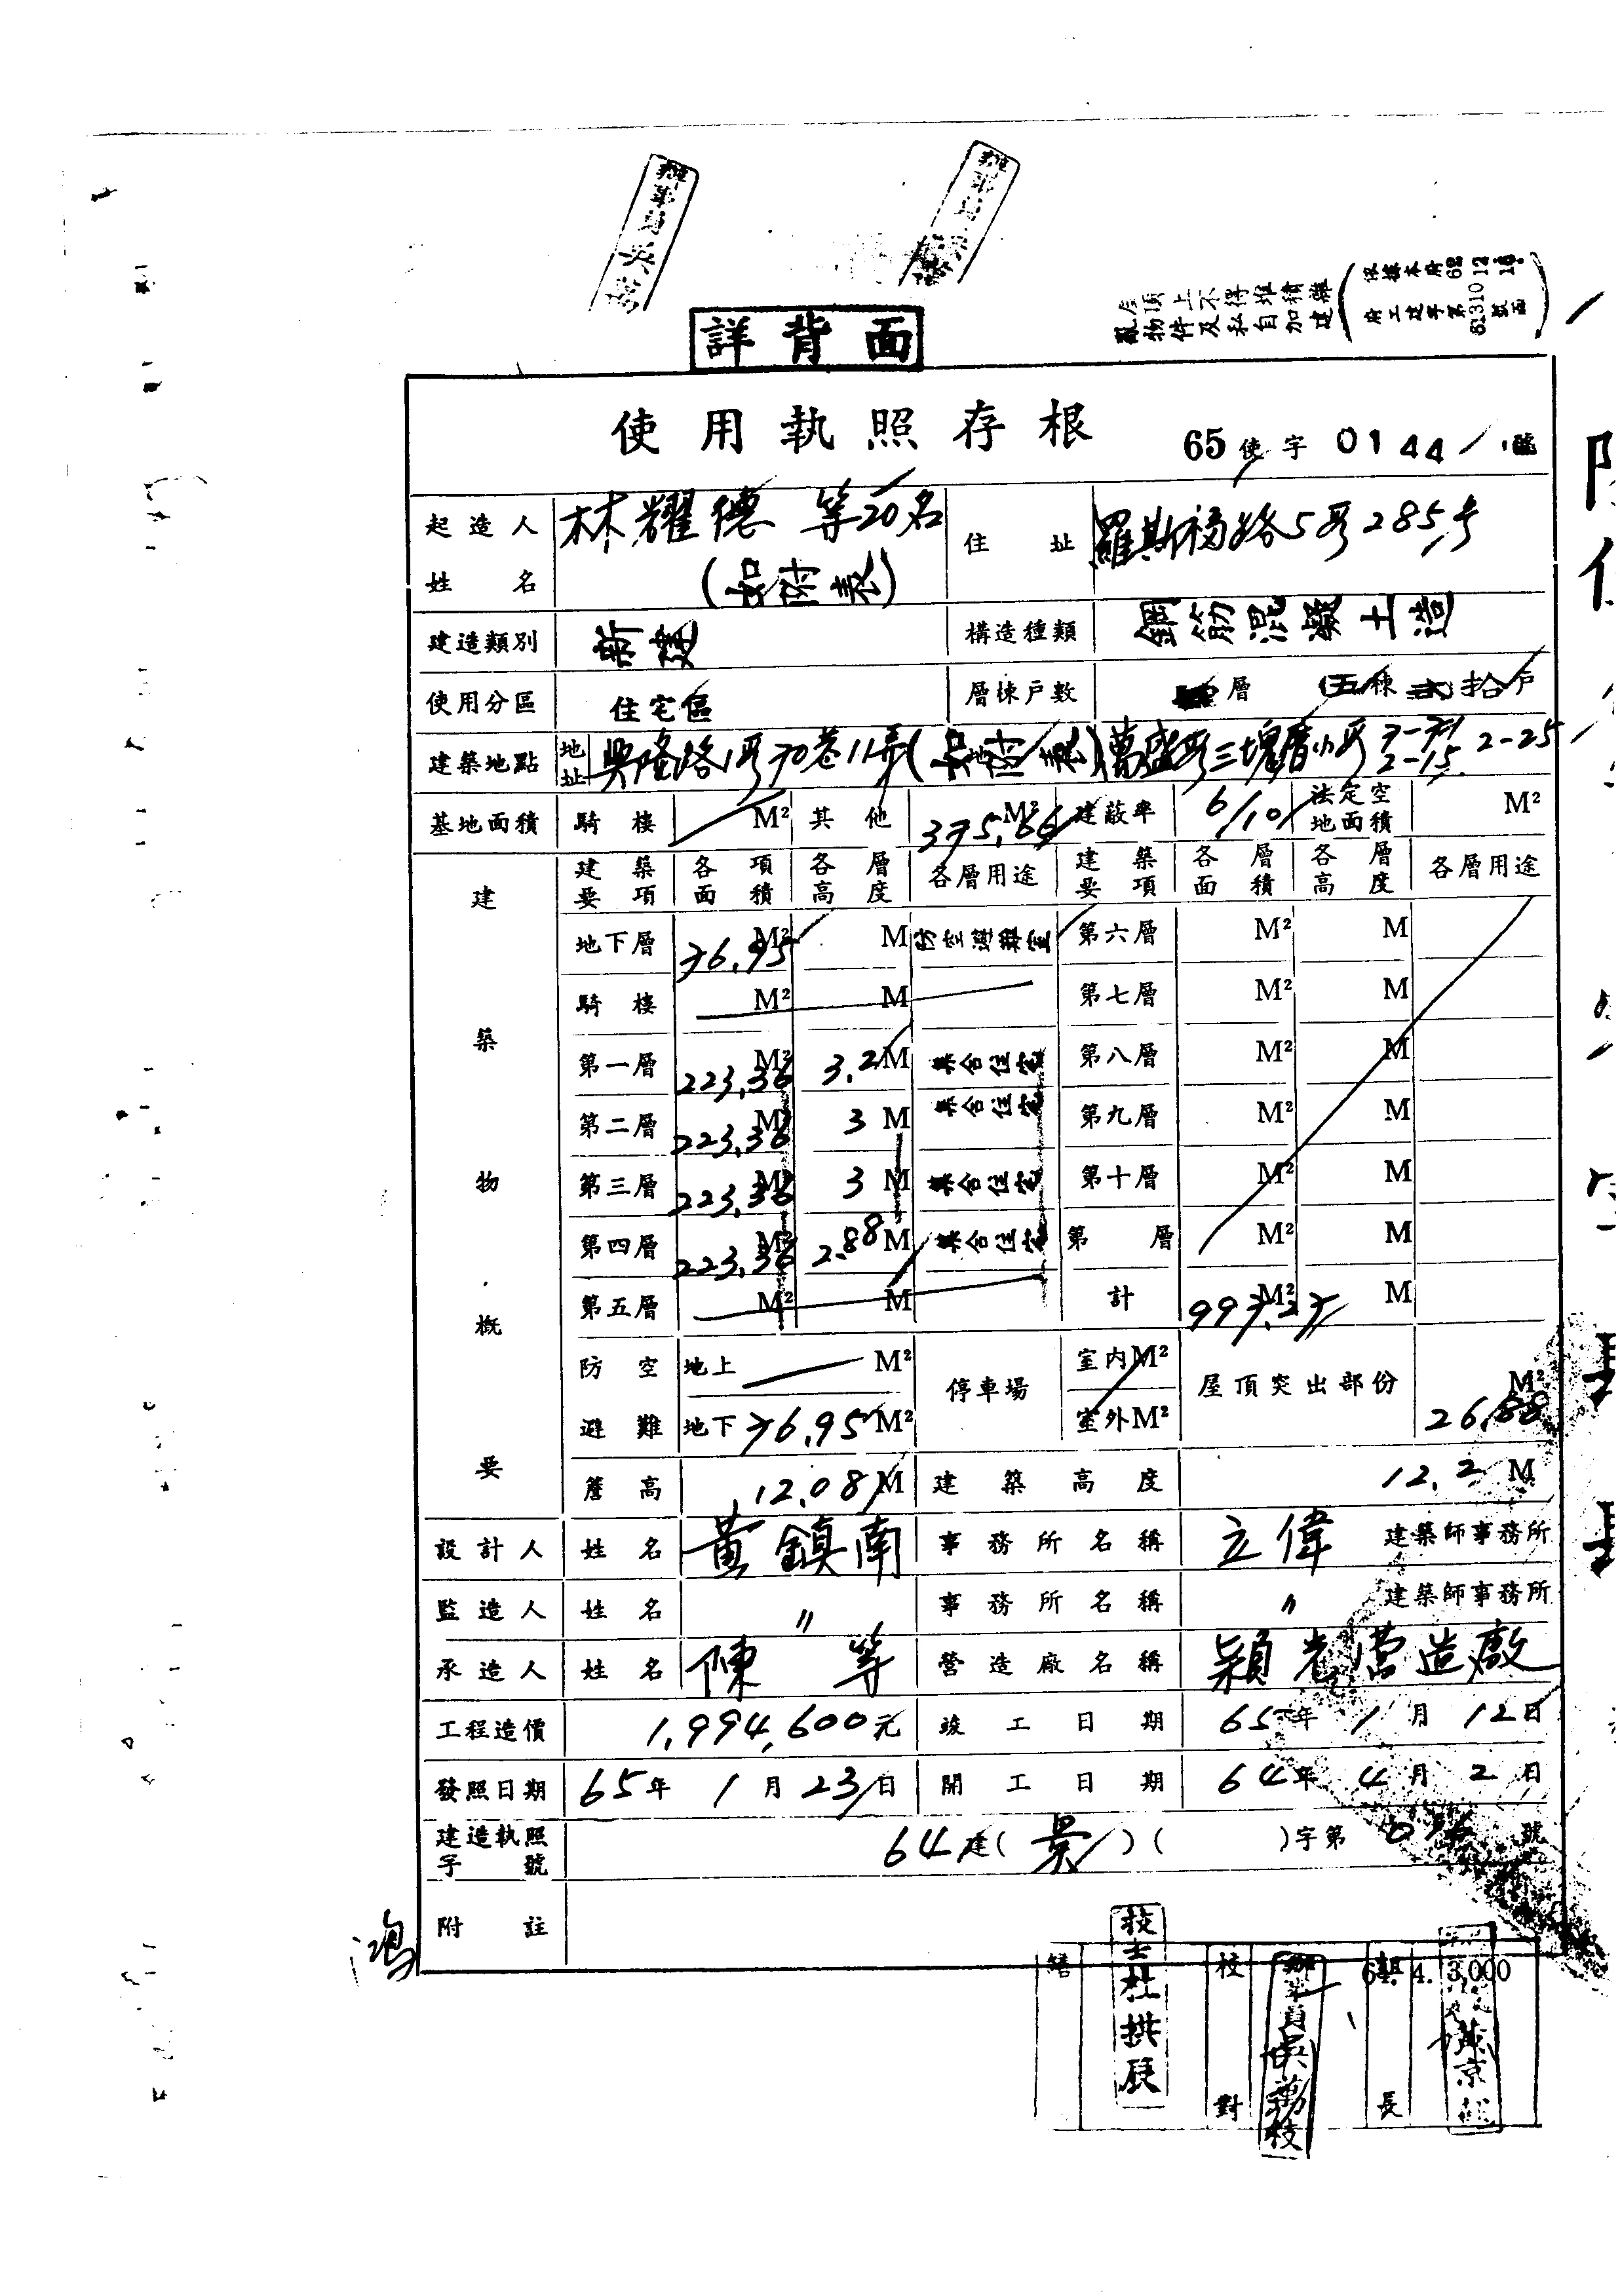 屋頂上不得堆積雜
亂物件及私自加建
依據本府62 12 18.
府工建字第61310號函
詳背面
使用執照存根
65使字0144號
起造人姓名 林耀德 等20名 (如附表) 住址 羅斯福路5段285号
建造類別 新建 構造種類 鋼筋混凝土造
使用分區 住宅區 層棟戶數 層 五棟 拾戶
建築地點 地址 興隆路1段70巷11弄(如附表)萬盛段三塊厝小段 2-15 2-25
基地面積 騎樓 M² 其他 375.66 M² 建蔽率 6/10 法定空地面積 M²
建築物概要
建築要項 各項面積 各層高度 各層用途 建築要項 各層面積 各層高度 各層用途
地下層 76.95 M² M 防空避難室 第六層 M² M
騎樓 M² M 第七層 M² M
第一層 223.36 M² 3.2 M 集合住宅 第八層 M² M
第二層 223.36 M² 3 M 集合住宅 第九層 M² M
第三層 223.36 M² 3 M 集合住宅 第十層 M² M
第四層 223.36 M² 2.88 M 集合住宅 第 層 M² M
第五層 M² M 計 997.27 M² M
防空避難 地上 M² 停車場 室內M² 屋頂突出部份 26.88 M²
地下 76.95 M² 室外M²
簷高 12.08 M 建築高度 12.2 M
設計人 姓名 黃鎮南 事務所名稱 立偉 建築師事務所
監造人 姓名 〃 事務所名稱 〃 建築師事務所
承造人 姓名 陳 等 營造廠名稱 穎光營造廠
工程造價 1,994,600元 竣工日期 65年1月12日
發照日期 65年1月23日 開工日期 64年4月2日
建造執照字號 64建(景)( )字第 號
附註
64. 4. 3,000
繕 技士杜拱辰 校對 辦事員吳萬枝 長